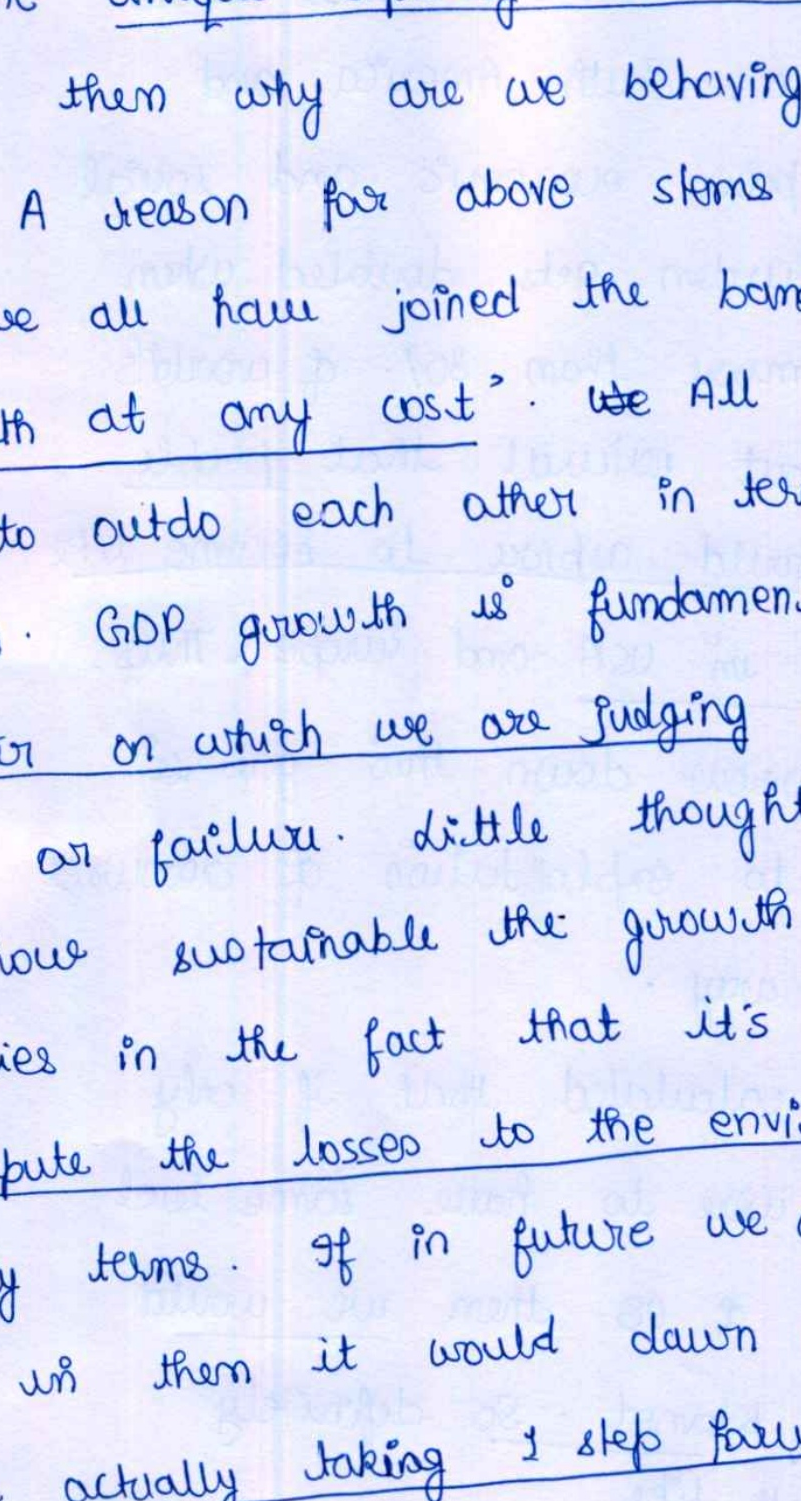 then why are we behaving
A reason for above stems
all have joined the
at any cost'. We All
to outdo each other in
. GDP growth is fundamen
on which we are judging
or failure. Little thought
sustainable the growth
in the fact that it's
pute the losses to the envi
terms. If in future we
in them it would dawn
actually taking 1 step forw